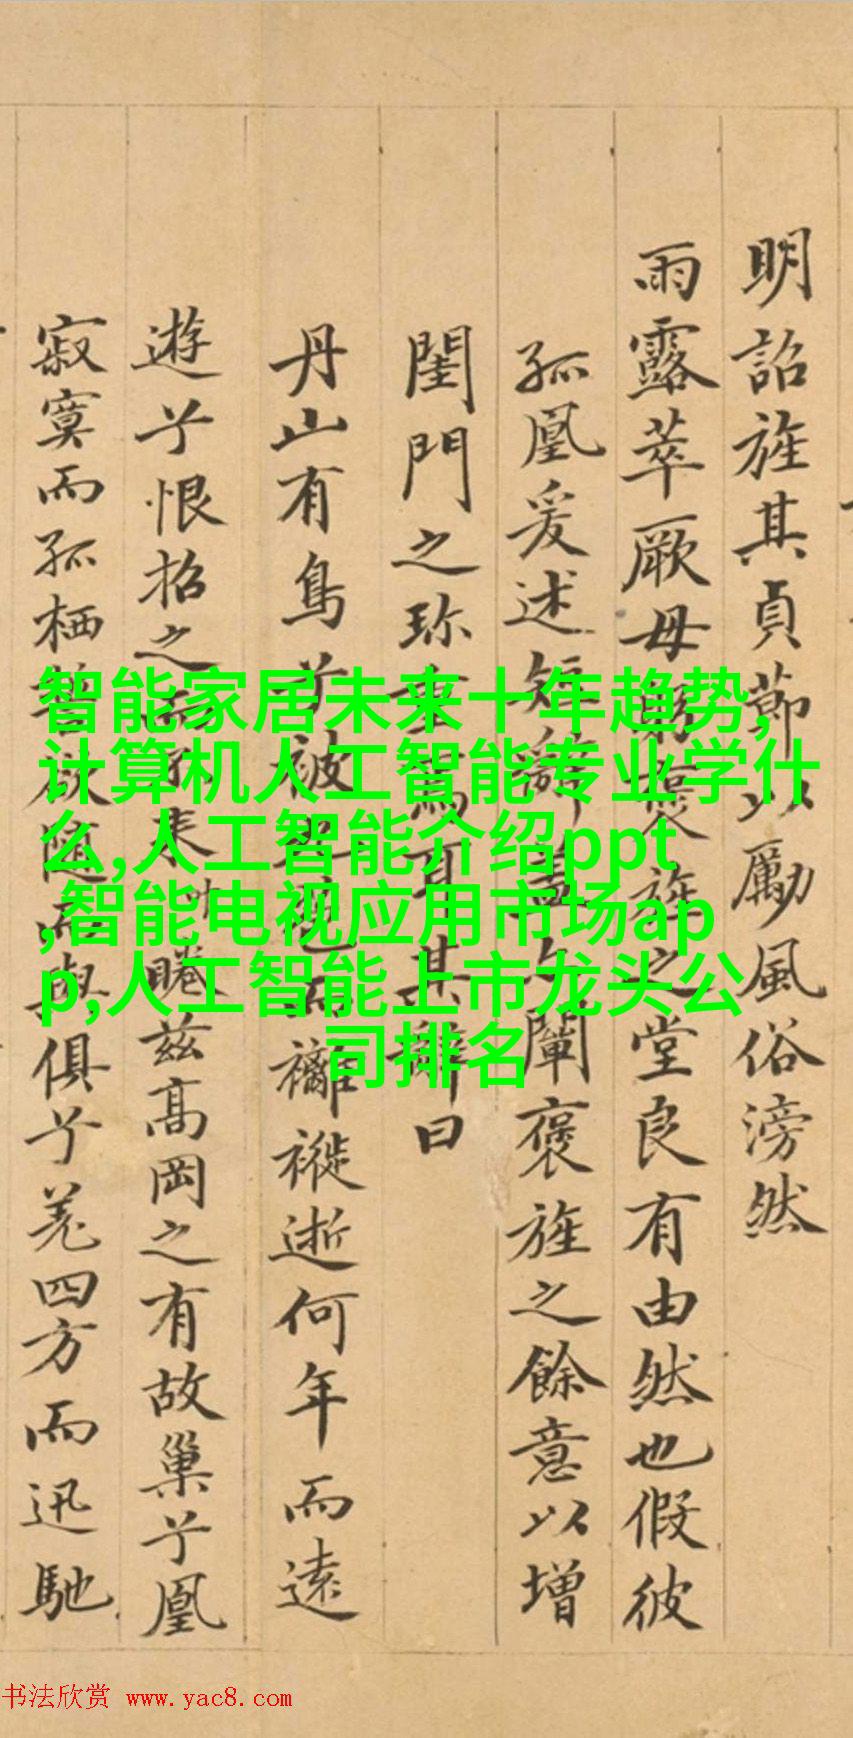 明詔旌其貞節以勵風俗滂然
雨露萃厥母
褒旌之堂良有由然也假彼
孤凰爰述短辭
闡褒旌之餘意以增
閨門之珎
其辭曰
丹山有鳥兮被
而
褵褷逝何年而遠
遊兮恨招之而
来
睠茲高岡之有故巢兮凰
寂寞而孤栖
欲随
與俱兮羌四方而迅馳
智能家居未来十年趋势,
计算机人工智能专业学什
么,人工智能介绍ppt
,智能电视应用市场ap
p,人工智能上市龙头公
司排名
书法欣赏 www.yac8.com